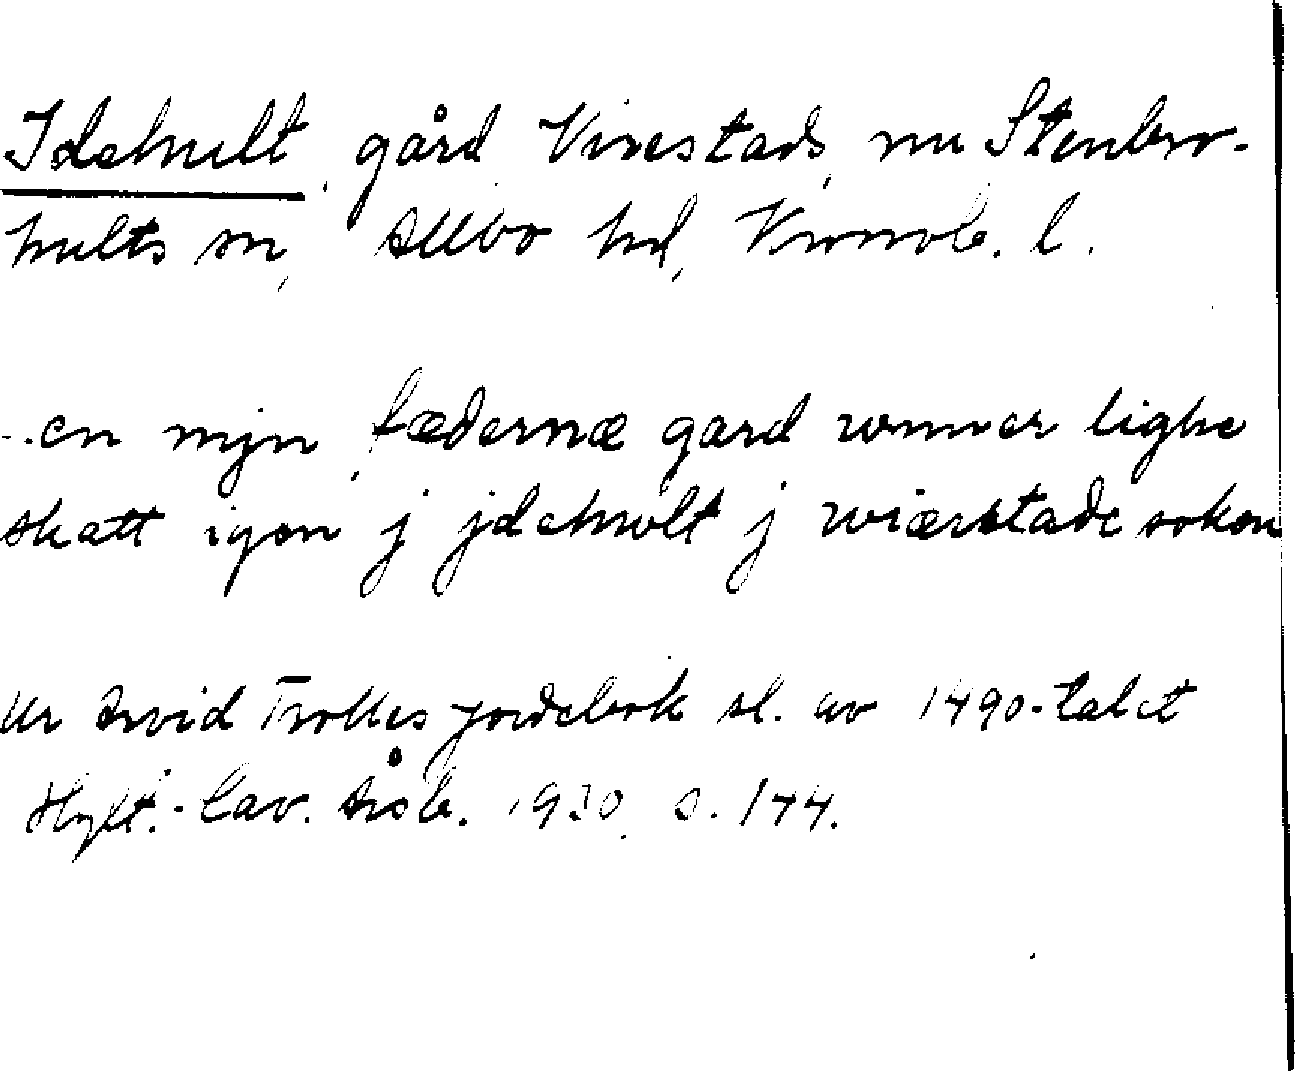 Idehult, gård Virestads, nu Stenbro-
hults sn, Allbo hd, Kronob. l.
..en mijn fædernæ gard ronner lighe
skatt igen j jdehwlt j wiærstade soken
Ur Arvid Trolles jordebok sl. av 1490-talet
Hylt.-Cav. årsb. 1930, s. 144.